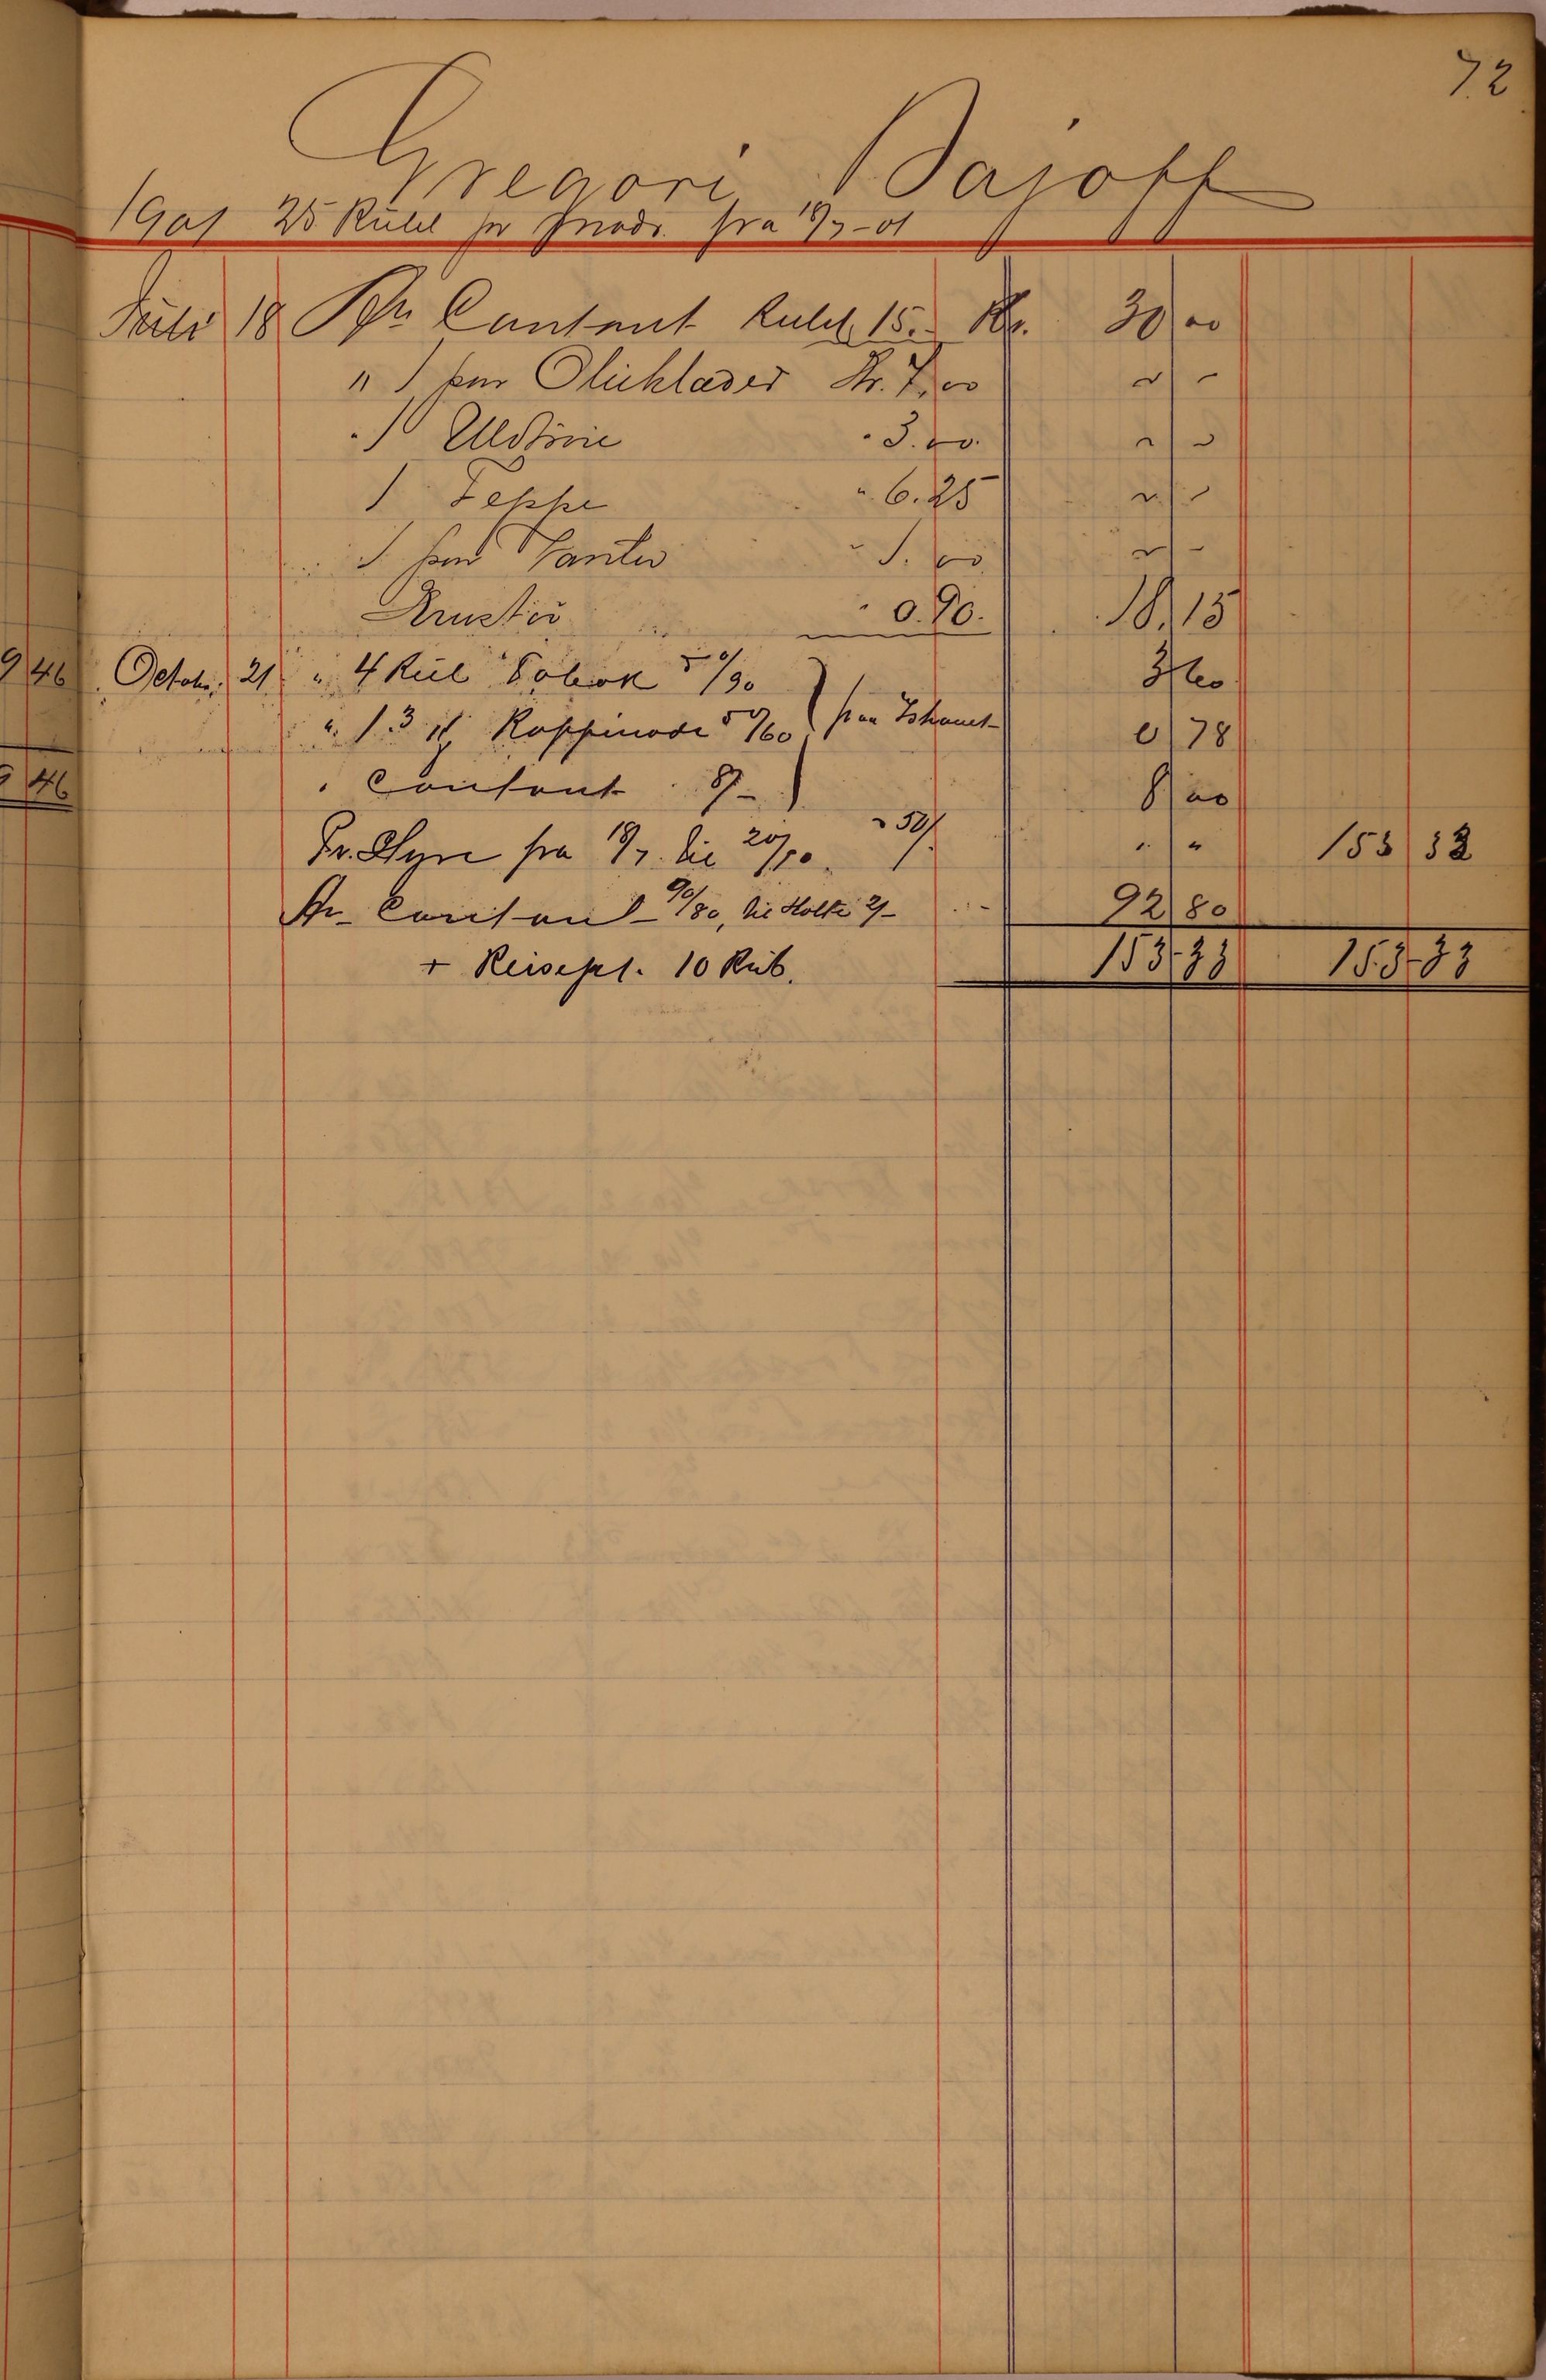 72
Gregori Bajoff
1901 25 Rubl pr Maade fra 18/7-01
Juli 18 An Contant Rubl. 15.- Kr. 30 00
" 1 par Olieklæder Kr. 7,00 " "
" 1 Uldtröie " 3.00. " "
1 Teppe " 6.25 " "
1 par Vanter " 1.00 " "
" 0.90. 18 15
9 46 Octobr. 21 " 4 Tobak 90 3 60
" 1.3 60 fra 0 78
9 46 " Contant 8/- 8 00
Pr. Hyre fra 18/7 til 20/10. 50/ " " 153 33
An Contant 90/80, til 2/- 92 80
+ Reisepl. 10 Rub. 153-33 153-33